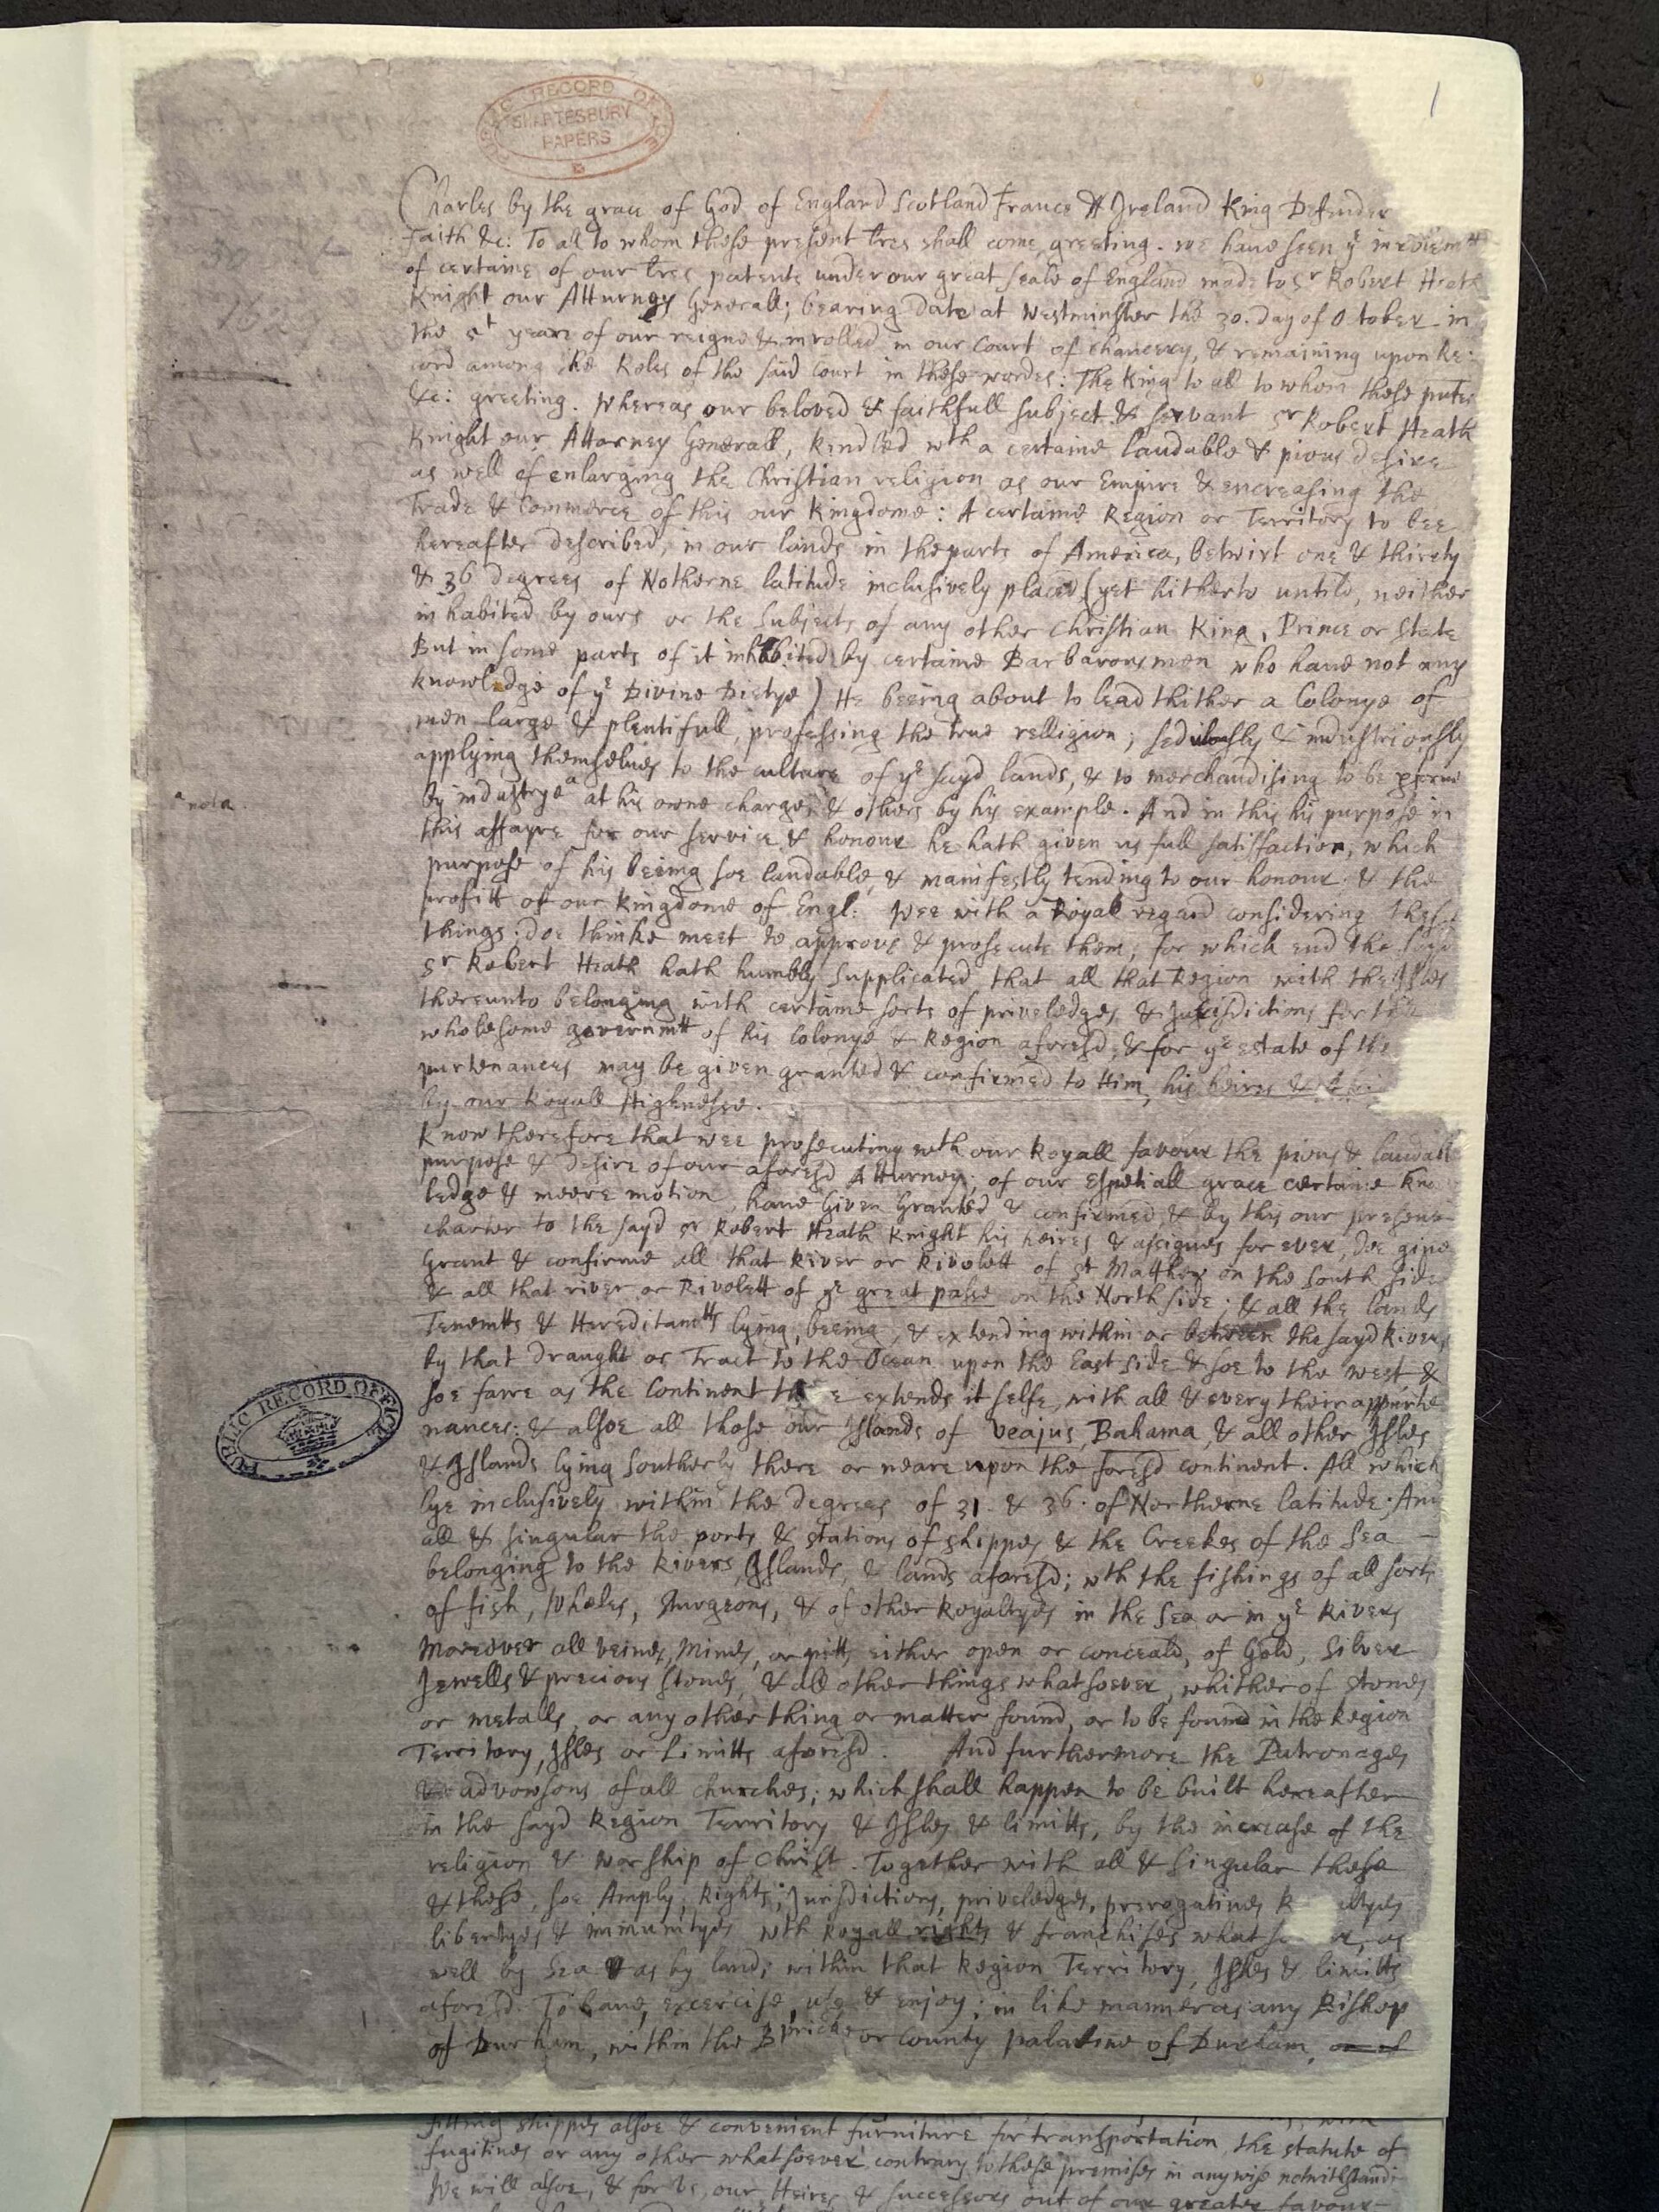 PUBLIC RECORD OFFICE
SHAFTESBURY
PAPERS
1
Charles by the grace of God of England Scotland France & Ireland King Defender
Faith &c: To all to whom these present tres shall come, greeting. we have seen ye inrolemtt
of certaine of our tres patents under our great seale of England made to Sr Robert Heath
Knight our Atturney Generall; bearing Date at Westminster the 30. day of O tober in
the 5t yeare of our reigne & inrolled in our Court of Chancery, & remaining upon Re:
cord among the Roles of the said Court in these wordes: The King to all to whom these
&c: greeting. Whereas our beloved & faithfull subject & servant Sr Robert Heath
Knight our Attorney Generall, kindled wth a certaine laudable & pious desire
as well of enlarging the Christian religion as our Empire & encreasing the
Trade & Commerce of this our kingdome: A certaine Region or Territory to bee
hereafter described, in our lands in the parts of America, betwixt one & thirty
& 36 degrees of Notherne latitude inclusively placed (yet hitherto untild, neither
inhabited by ours or the Subjects of any other Christian King, Prince or State
But in some parts of it inhabited by certaine Barbarous men who have not any
knowledge of ye Divine Dietye) He being about to lead thither a Colonye of
men large & plentifull, professing the true relligion; sedulously & industriously
applying themselves to the culture of ye sayd lands, & to merchandising to be
by industryea at his owne charges, & others by his example. And in this his purpose in
a nota.
this affayre for our service & honour he hath given us full satisfaction, which
purpose of his being soe laudable, & manifestly tending to our honour & the
profitt of our kingdome of Engl: Wee with a Royal regard considering these
things: doe thinke meet to approve & prosecute them; for which end the sayd
Sr Robert Heath hath humbly supplicated that all that Region with the Isles
thereunto belonging with certaine sorts of priveledges & Jurisdictions for the
wholesome governmtt of his Colonye & Region aforesd, & for ye estate of the
purtenances may be given granted & confirmed to Him, his heires &
by our Royall Highnesse.
Know therefore that wee prosecuting wth our Royall favour the pious & laudable
purpose & desire of our aforesd Atturney; of our espetiall grace certaine
ledge & meere motion, have Given Granted & confirmed, & by this our present
charter to the sayd Sr Robert Heath Knight his heires & assignes for ever, doe give
Grant & confirme all that River or Rivolett of St Matthew on the South side
& all that river or Rivolett of ye great passe on the North side; & all the lands
Tenemtts & Hereditamtts lying, being, & extending within or between the sayd Rivers
by that draught or Tract to the Ocean upon the East side & soe to the west &
soe farre as the Continent th e extends it selfe, with all & every their appurte
nances: & alsoe all those our Islands of Veajus, Bahama, & all other Isles
& Islands lying Southerly there or neare upon the foresd continent. All which
lye inclusively within the degrees of 31 & 36 of Northerne latitude; And
all & singular the ports & stations of shippes & the Creekes of the Sea —
belonging to the Rivers, Islands, & lands aforesd; wth the fishings of all sorts
of fish, Whales, Sturgeons, & of other Royaltyes in the Sea or in ye Rivers
Moreover all veines, Mines, or pitts, either open or conceald, of Gold, Silver
Jewells & precious stones, & all other things whatsoever, whither of stones
or metalls, or any other thing or matter found, or to be found in the Region
Territory, Isles or Limitts aforesd. And furthermore the Patronages
& advowsons of all churches; which shall happen to be built hereafter
in the sayd Region Territory & Isles & limitts, by the increase of the
religion & worship of Christ. Together with all & singular these
& those, soe Amply, Rights, Jurisdictions, priveledges, prerogatives R altyes
libertyes & immunityes wth Royall rights & franchises what so er, as
well by Sea & as by land, within that Region Territory, Isles & limitts
aforesd. To have, excercise, use & enjoy; in like manner as any Bishop
of Durham, within the Bpricke or county palatine of Durham, or of
PUBLIC RECORD OFFICE
fitting shippes alsoe & convenient furniture for transportation, the statute of
fugitives or any other whatsoever contrary to these premises in anywise notwithstandi
We will alsoe, & for Us, our Heires & successors out of our greater favour